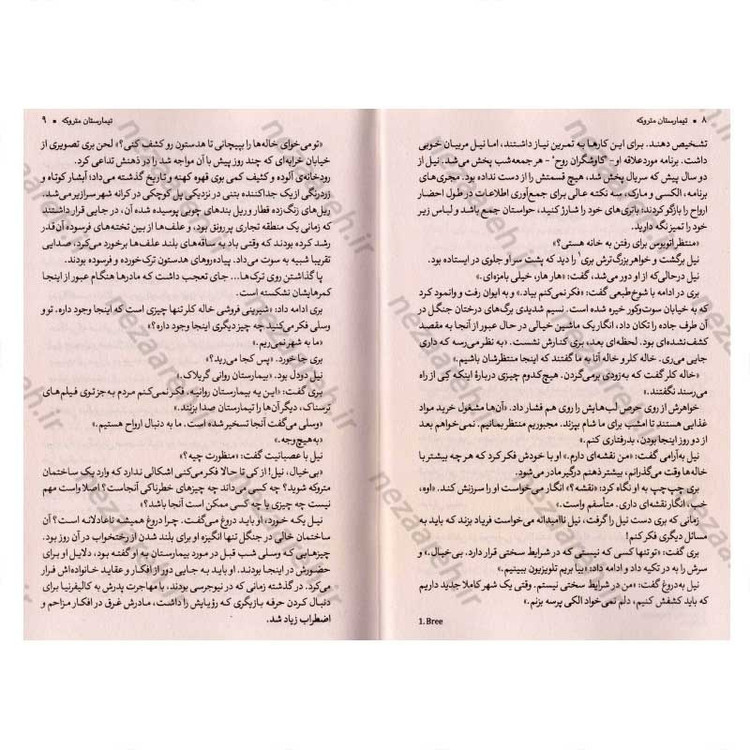 ۸ ● تیمارستان متروکه
تشخیص دهند. برای این کارها به تمرین نیاز داشتند، اما نیل مربیان خوبی
داشت. برنامه موردعلاقه او- «کاوشگران روح»- هر جمعه‌شب پخش می‌شد. نیل از
دو سال پیش که سریال پخش شد، هیچ قسمتش را از دست نداده بود. مجری‌های
برنامه، الکسی و مارک، سه نکته عالی برای جمع‌آوری اطلاعات در طول احضار
ارواح را بازگو کردند: باتری‌های خود را شارژ کنید، حواستان جمع باشد و لباس زیر
خود را تمیز نگه دارید.
«منتظر اتوبوس برای رفتن به خانه هستی؟»
نیل برگشت و خواهر بزرگ‌ترش بری¹ را دید که پشت سر او جلوی در ایستاده بود.
نیل درحالی‌که از او دور می‌شد، گفت: «هار هار، خیلی بامزه‌ای.»
بری در ادامه با شوخ‌طبعی گفت: «فکر نمی‌کنم بیاد.» و به ایوان رفت و وانمود کرد
که به خیابان سوت‌وکور خیره شده است. نسیم شدیدی برگ‌های درختان جنگل در
آن طرف جاده را تکان داد، انگار یک ماشین خیالی در حال عبور از آنجا به مقصد
کشف‌نشده‌ای بود. لحظه‌ای بعد، بری کنارش نشست. «به نظر می‌رسه که داری
جایی می‌ری. خاله کلر و خاله آنا به ما گفتند که اینجا منتظرشان باشیم.»
«خاله کلر گفت که به‌زودی برمی‌گردن. هیچ‌کدوم چیزی دربارهٔ اینکه کِی از راه
می‌رسند نگفتند.»
خواهرش از روی حرص لب‌هایش را روی هم فشار داد. «آن‌ها مشغول خرید مواد
غذایی هستند تا امشب برای ما شام بپزند. مجبوریم منتظر بمانیم. نمی‌خواهم بعد
از دو روز اینجا بودن، بدرفتاری کنم.»
نیل به‌آرامی گفت: «من نقشه‌ای دارم.» او با خودش فکر کرد که هر چه بیشتر با
خاله‌ها وقت می‌گذرانم، بیشتر ذهنم درگیر مادر می‌شود.
بری چپ‌چپ به او نگاه کرد: «نقشه؟» انگار می‌خواست او را سرزنش کند. «اوه،
خب، انگار نقشه‌ای داری. متأسفم واست.»
زمانی که بری دست نیل را گرفت، نیل ناامیدانه می‌خواست فریاد بزند که باید به
مسائل دیگری فکر کنم!
بری گفت: «تو تنها کسی که نیستی که در شرایط سختی قرار دارد. بی‌خیال.» و
به در خانه تکیه داد و ادامه داد: «بیا بریم تلویزیون ببینیم.»
نیل به‌دروغ گفت: «من در شرایط سختی نیستم. وقتی یک شهر کاملا جدید داریم
که باید کشفش کنیم، دلم نمی‌خواد الکی پرسه بزنم.»
1. Bree
تیمارستان متروکه ● ۹
«تو می‌خوای خاله‌ها را بپیچانی تا هدستون رو کشف کنی؟» لحن بری تصویری از
خیابان خرابه‌ای که چند روز پیش با آن مواجه شد را در ذهنش تداعی کرد.
رودخانه‌ی آلوده و کثیف کمی بوی قهوه کهنه و تاریخ گذشته می‌داد؛ آبشار کوتاه و
زردرنگی از یک جداکننده بتنی در نزدیکی پل کوچکی در کرانه شهر سرازیر می‌شد.
ریل‌های زنگ‌زده قطار و ریل بندهای چوبی پوسیده شده آن، در جایی قرار داشتند
که زمانی یک منطقه تجاری پررونق بود، و علف‌ها از بین تخته‌های فرسوده آن‌قدر
رشد کرده بودند که وقتی باد به ساقه‌های بلند علف‌ها برخورد می‌کرد، صدایی
تقریبا شبیه به سوت می‌داد. پیاده‌روهای هدستون ترک‌خورده و فرسوده بودند.
پا گذاشتن روی ترک‌ها... جای تعجب داشت که مادرها هنگام عبور از اینجا
کمرهایشان نشکسته است.
بری ادامه داد: «شیرینی فروشی خاله کلر تنها چیزی است که اینجا وجود داره. تو و
وسلی فکر می‌کنید چه چیز دیگری اینجا وجود داره؟»
«ما به شهر نمی‌ریم.»
بری جا خورد. «پس کجا می‌رید؟»
نیل دودل بود. «بیمارستان روانی گریلاک.»
بری گفت: «این یه بیمارستان روانیه. فکر نمی‌کنم مردم به‌جز توی فیلم‌های
ترسناک، دیگر آن‌ها را تیمارستان صدا بزنند.»
«وسلی می‌گفت آنجا تسخیر شده است. ما به دنبال ارواح هستیم.»
«به‌هیچ‌وجه.»
نیل با عصبانیت گفت: «منظورت چیه؟»
«بی‌خیال، نیل! از کی تا حالا فکر می‌کنی اشکالی ندارد که وارد یک ساختمان
متروکه شوید؟ چه کسی می‌داند چه چیزهای خطرناکی آنجاست؟ اصلا واست مهم
نیست چه چیزی یا چه کسی ممکن است آنجا باشد؟»
نیل یکه خورد، او باید دروغ می‌گفت. چرا دروغ همیشه ناعادلانه است؟ آن
ساختمان خالی در جنگل تنها انگیزه امروز او برای بلند شدن از رختخواب در آن روز بود.
چیزهایی که وسلی شب قبل در مورد بیمارستان به او گفته بود، دلایل او برای
حضورش در اینجا بودند. او باید به جایی دور از افکار و عقاید خانواده‌اش فرار
می‌کرد. در گذشته زمانی که در نیوجرسی بودند، با مهاجرت پدرش به کالیفرنیا برای
دنبال کردن حرفه بازیگری که رؤیایش را داشت، مادرش غرق در افکار مزاحم و
اضطراب زیاد شد.
nezaarateh.ir